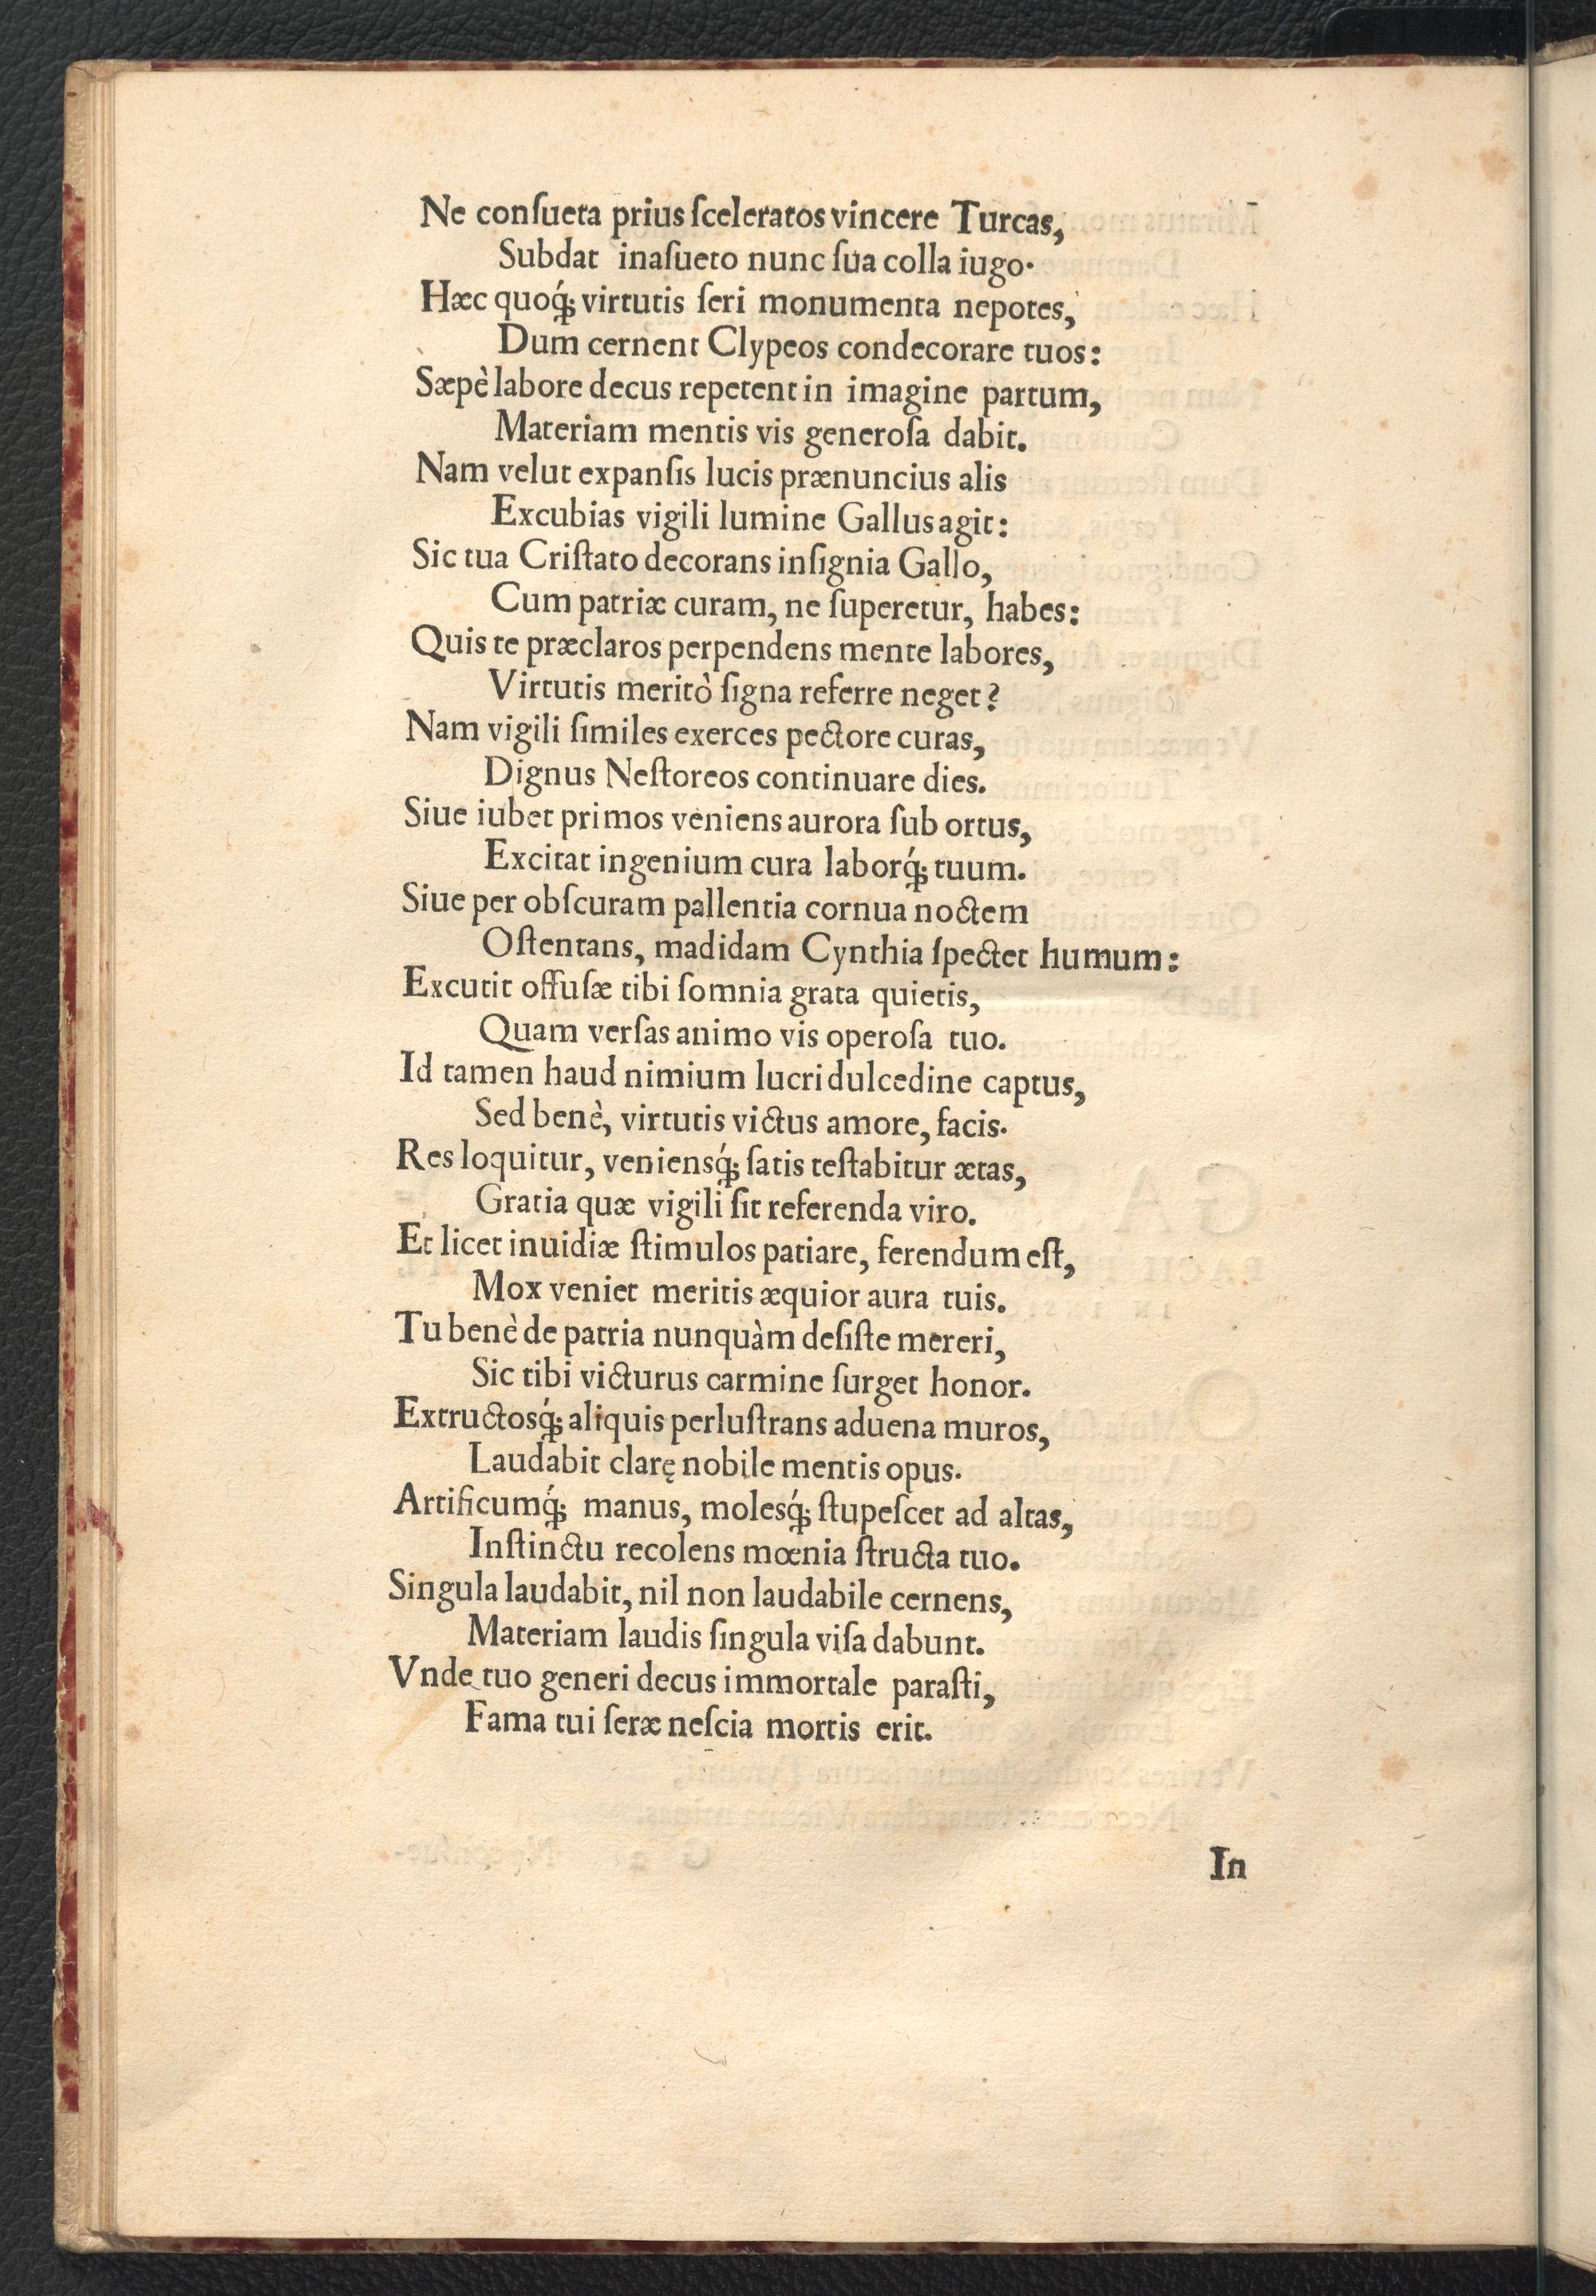 Ne conſueta prius ſceleratos vincere Turcas,
Subdat inaſueto nunc ſua colla iugo.
Hæc quoq́; virtutis ſeri monumenta nepotes,
Dum cernent Clypeos condecorare tuos:
Sæpè labore decus repetent in imagine partum,
Materiam mentis vis generoſa dabit.
Nam velut expanſis lucis prænuncius alis
Excubias vigili lumine Gallus agit:
Sic tua Criſtato decorans inſignia Gallo,
Cum patriæ curam, ne ſuperetur, habes:
Quis te præclaros perpendens mente labores,
Virtutis meritò ſigna referre neget?
Nam vigili ſimiles exerces pectore curas,
Dignus Neſtoreos continuare dies.
Siue iubet primos veniens aurora ſub ortus,
Excitat ingenium cura laborq́; tuum.
Siue per obſcuram pallentia cornua noctem
Oſtentans, madidam Cynthia ſpectet humum:
Excutit offuſæ tibi ſomnia grata quietis,
Quam verſas animo vis operoſa tuo.
Id tamen haud nimium lucri dulcedine captus,
Sed benè, virtutis victus amore, facis.
Res loquitur, veniensq́; ſatis teſtabitur ætas,
Gratia quæ vigili ſit referenda viro.
Et licet inuidiæ ſtimulos patiare, ferendum eſt,
Mox veniet meritis æquior aura tuis.
Tu benè de patria nunquàm deſiſte mereri,
Sic tibi victurus carmine ſurget honor.
Extructosq́; aliquis perluſtrans aduena muros,
Laudabit clarę nobile mentis opus.
Artificumq́; manus, molesq́; ſtupeſcet ad altas,
Inſtinctu recolens mœnia ſtructa tuo.
Singula laudabit, nil non laudabile cernens,
Materiam laudis ſingula viſa dabunt.
Vnde tuo generi decus immortale paraſti,
Fama tui ſeræ neſcia mortis erit.
In